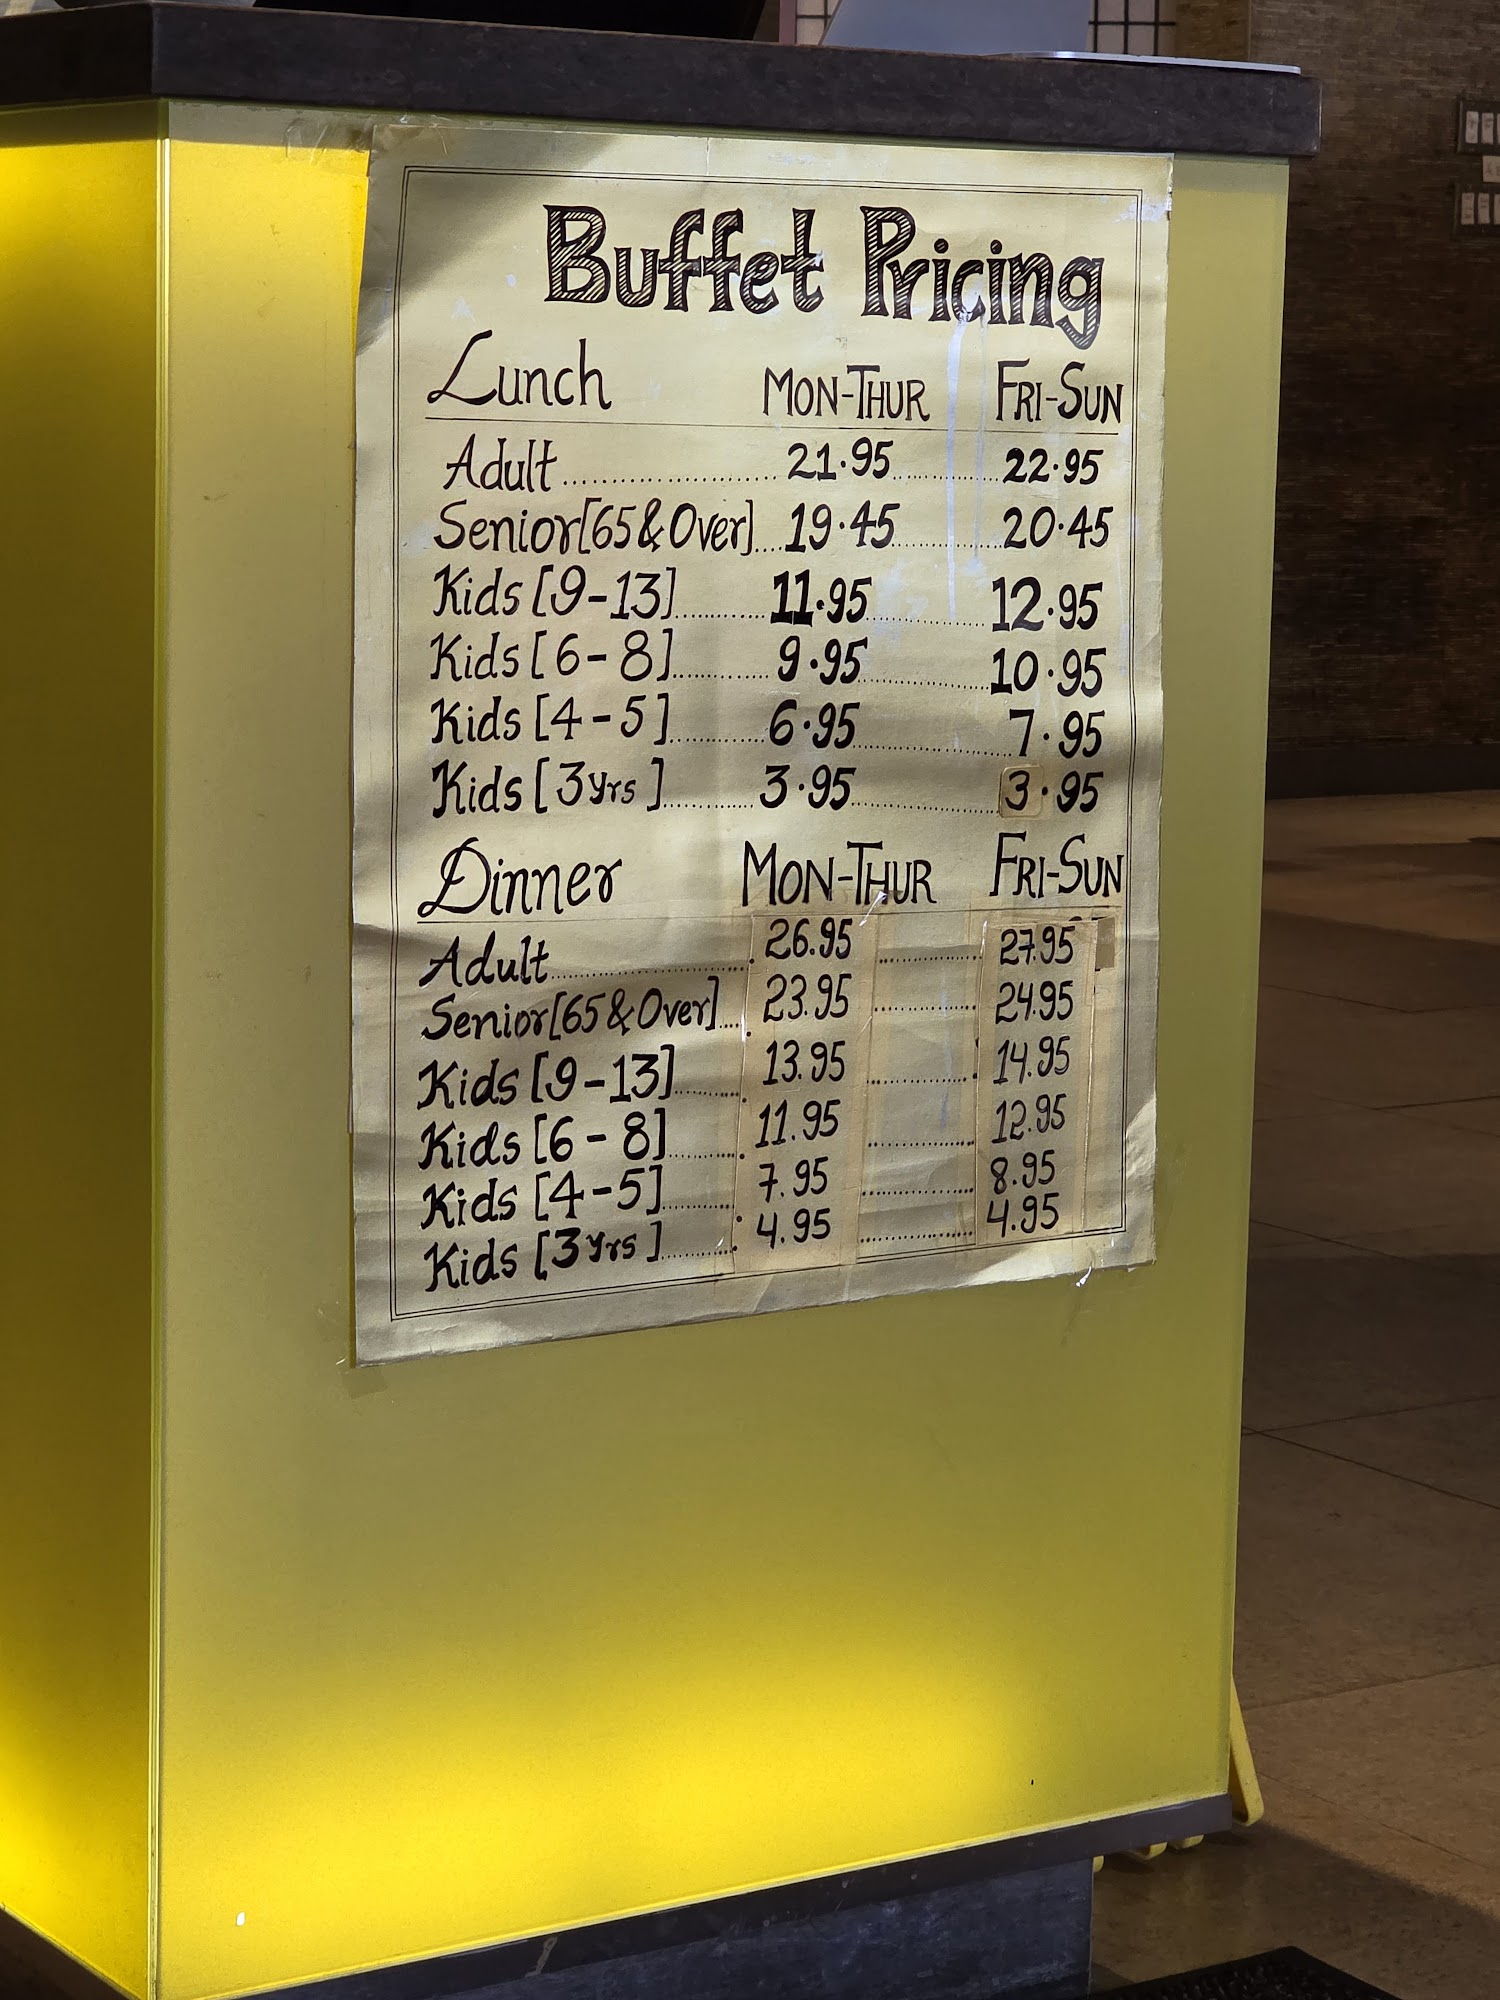 Buffet Pricing
Lunch MON-THUR FRI-SUN
Adult 21.95 22.95
Senior [65 & Over] 19.45 20.45
Kids [9-13] 11.95 12.95
Kids [6-8] 9.95 10.95
Kids [4-5] 6.95 7.95
Kids [3yrs] 3.95 3.95
Dinner MON-THUR FRI-SUN
Adult 26.95 27.95
Senior [65 & Over] 23.95 24.95
Kids [9-13] 13.95 14.95
Kids [6-8] 11.95 12.95
Kids [4-5] 7.95 8.95
Kids [3yrs] 4.95 4.95